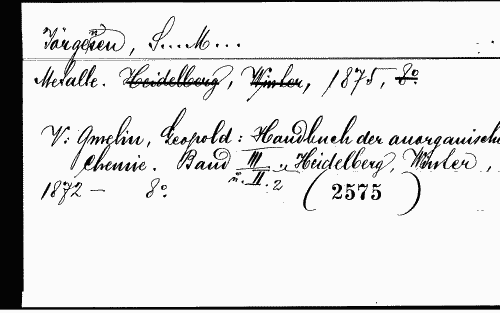 Jörgensen, S... M...
Metalle. Heidelberg, Winter, 1875, 8°
V: Gmelin, Leopold: Handbuch der anorganische
Chemie. Band III. Heidelberg, Winter,
u. II. 2
1872 – 8° (2575)